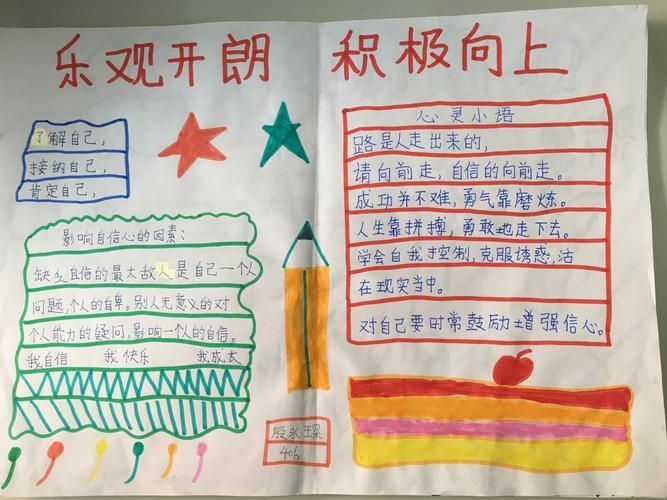 乐观开朗 积极向上
了解自己，
接纳自己，
肯定自己，
影响自信心的因素：
缺乏自信的最大敌人是自己一个人
问题，个人的自卑。别人无意义的对
个人能力的疑问，影响一个人的自信。
我自信 我快乐 我成长
心灵小语
路是人走出来的，
请向前走，自信的向前走。
成功并不难，勇气靠磨炼。
人生靠拼搏，勇敢地走下去。
学会自我控制，克服诱惑，活
在现实当中。
对自己要时常鼓励增强信心。
殷永琛
406